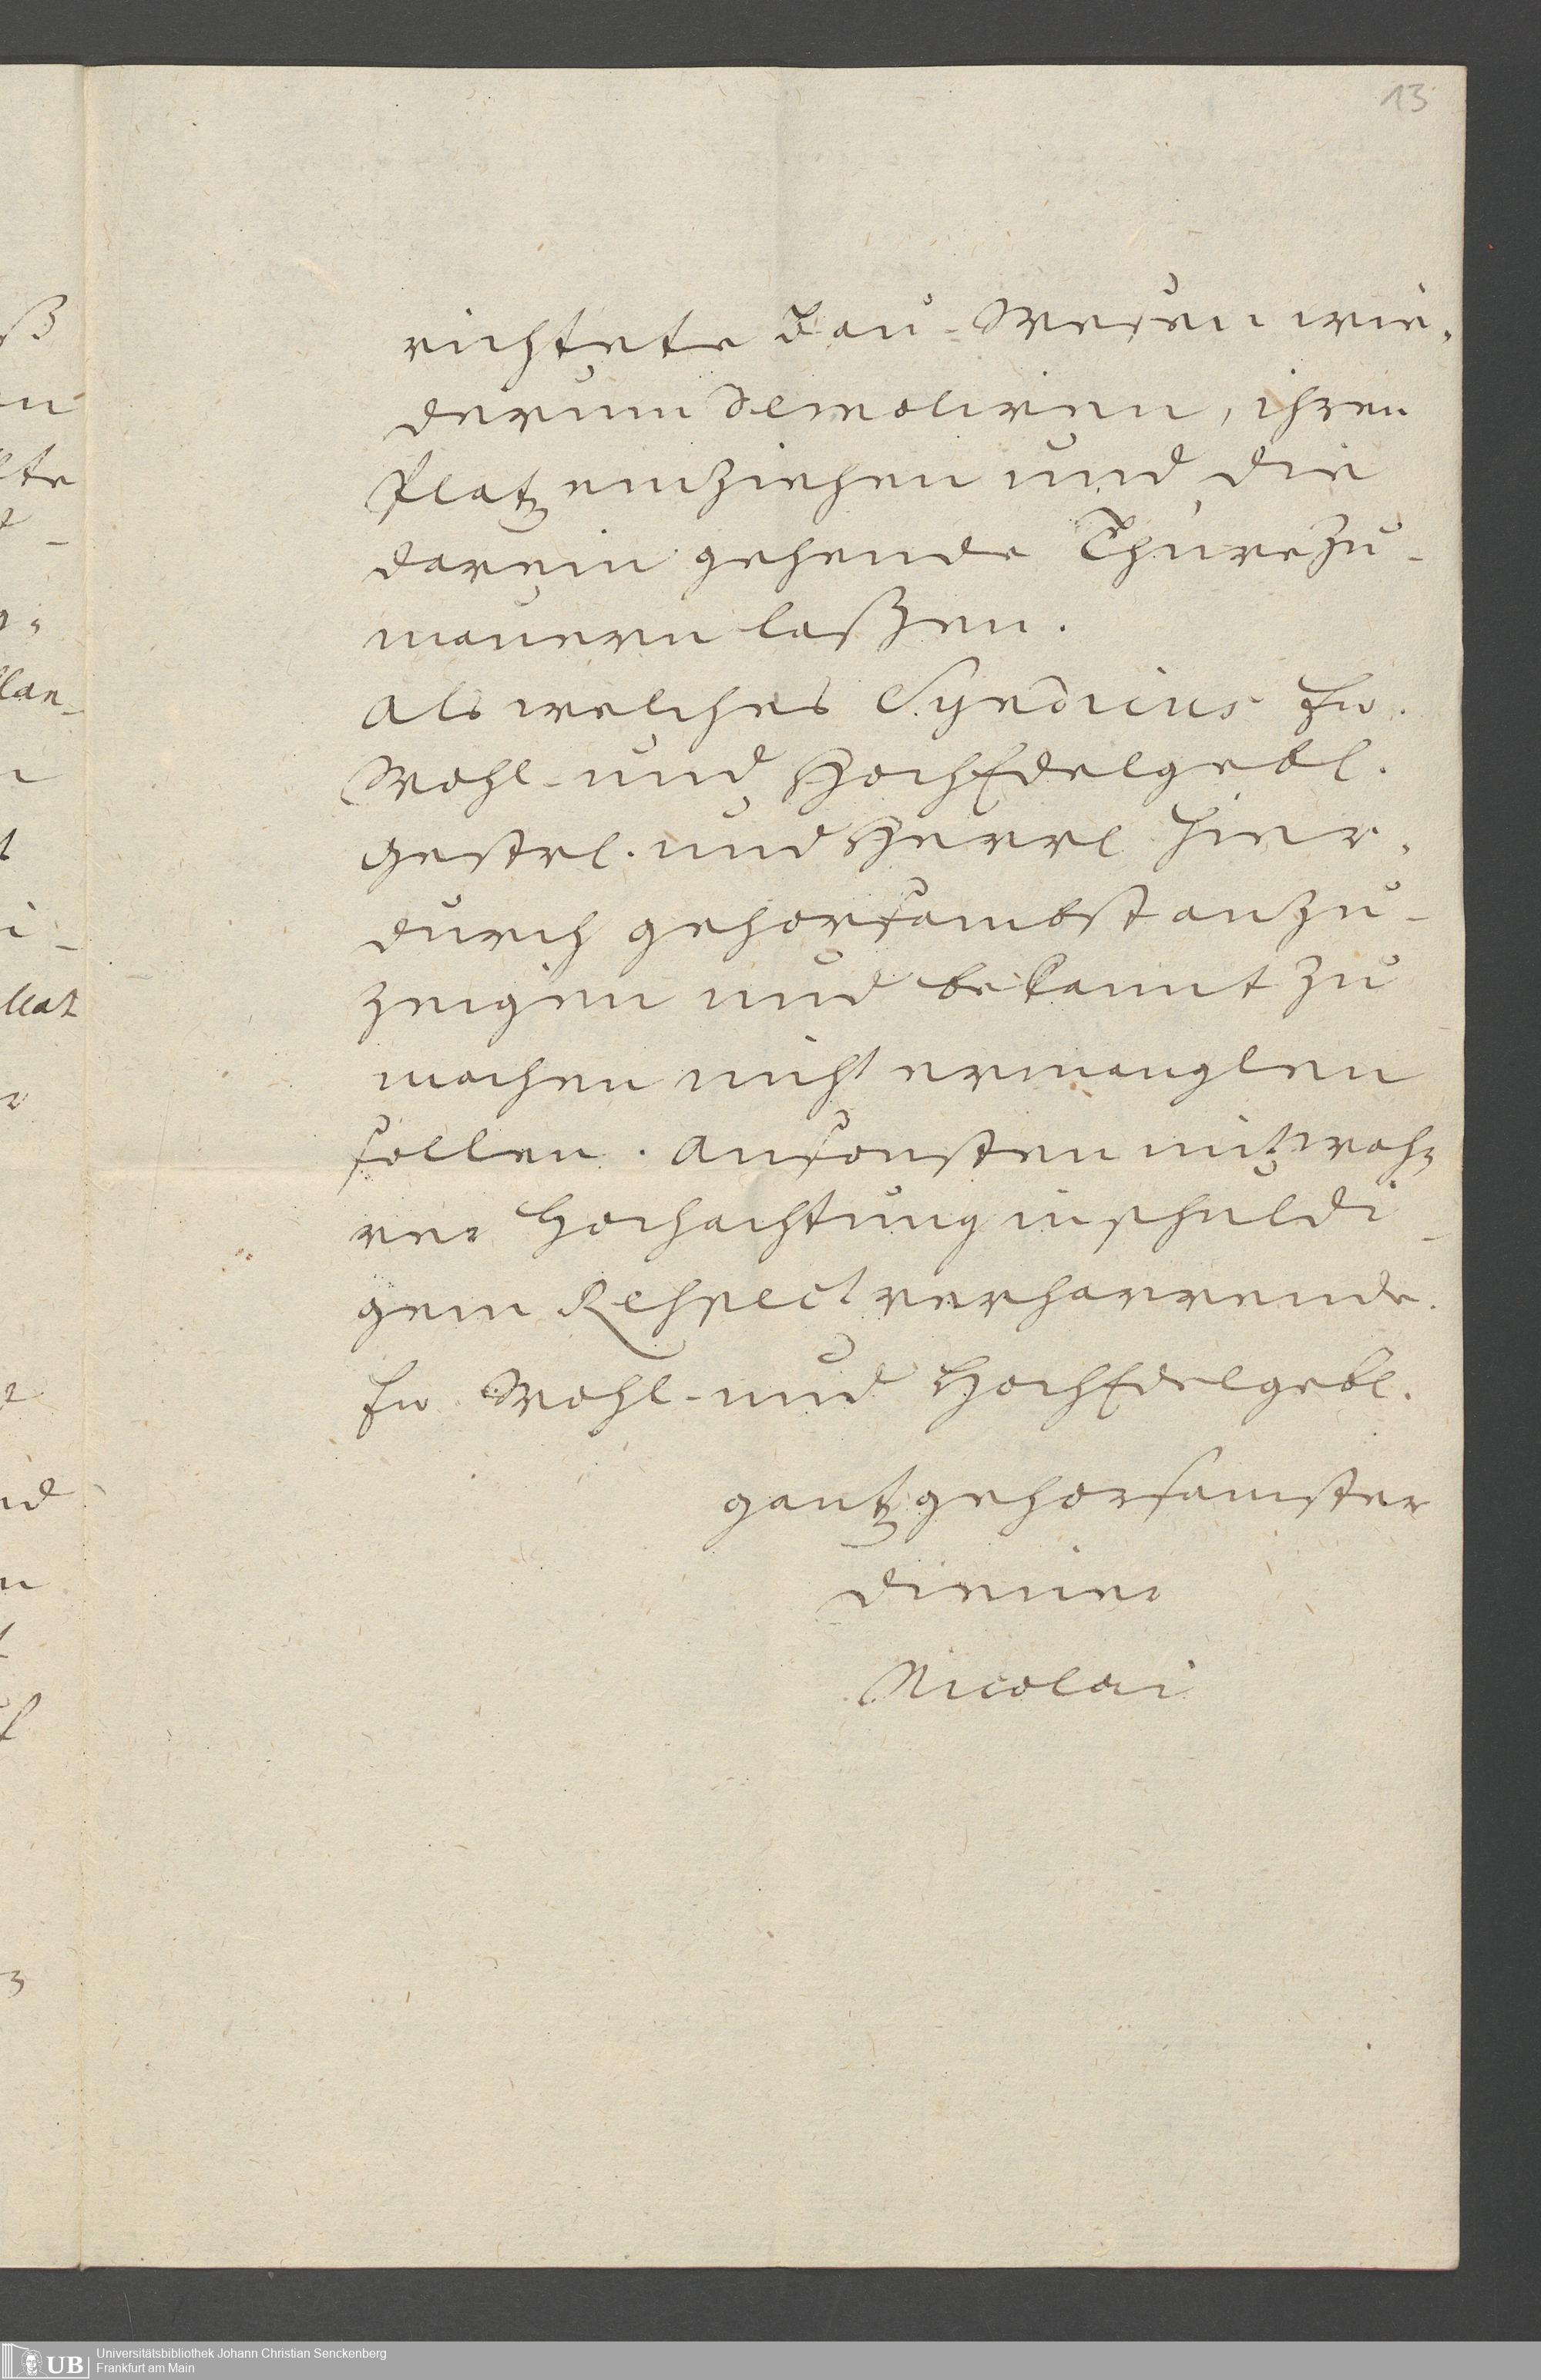 13
richtete Bau-Wesen wie-
derum demoliren, ihren
Platz einziehen und die
darein gehende Thüre zu-
mauern laßen.
Als welches Syndicus Ew.
Wohl- und HochEdelgebl.
Gestrl. und Herrl. hier-
durch gehorsambst anzu-
zeigen und bekannt zu
machen nicht ermanglen
sollen. Ansonsten mit wah-
rer Hochachtung in schuldi-
gem Respect verharrende.
Ew. Wohl- und HochEdelgebl.
gantz gehorsamster
Diener
Nicolai
UB Universitätsbibliothek Johann Christian Senckenberg
Frankfurt am Main